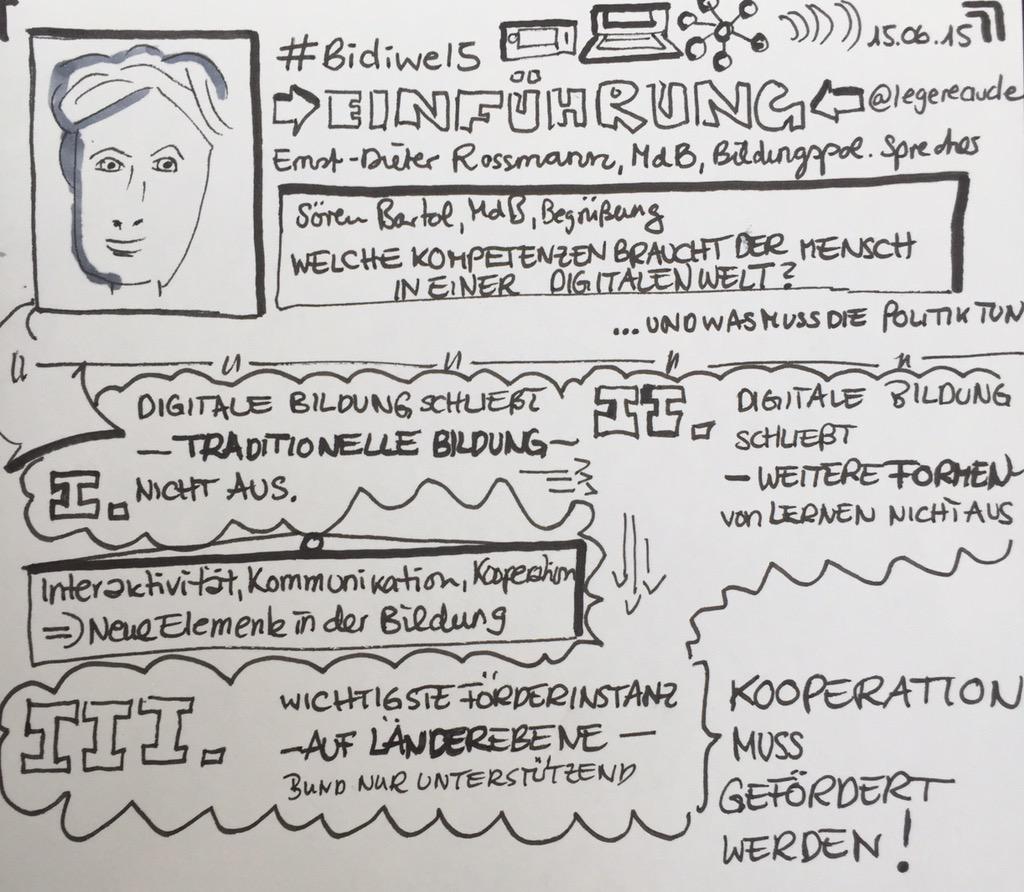 #Bidiwe15
15.06.15
EINFÜHRUNG
@legereaude
Ernst-Dieter Rossmann, MdB, Bildungspol. Sprecher
Sören Bartol, MdB, Begrüßung
WELCHE KOMPETENZEN BRAUCHT DER MENSCH
IN EINER DIGITALEN WELT?
...UND WAS MUSS DIE POLITIK TUN
I.
DIGITALE BILDUNG SCHLIEßT
— TRADITIONELLE BILDUNG —
NICHT AUS.
Interaktivität, Kommunikation, Kooperation
=> Neue Elemente in der Bildung
II.
DIGITALE BILDUNG
SCHLIEßT
— WEITERE FORMEN
von LERNEN NICHT AUS
III.
WICHTIGSTE FÖRDERINSTANZ
— AUF LÄNDEREBENE —
BUND NUR UNTERSTÜTZEND
KOOPERATION
MUSS
GEFÖRDERT
WERDEN!